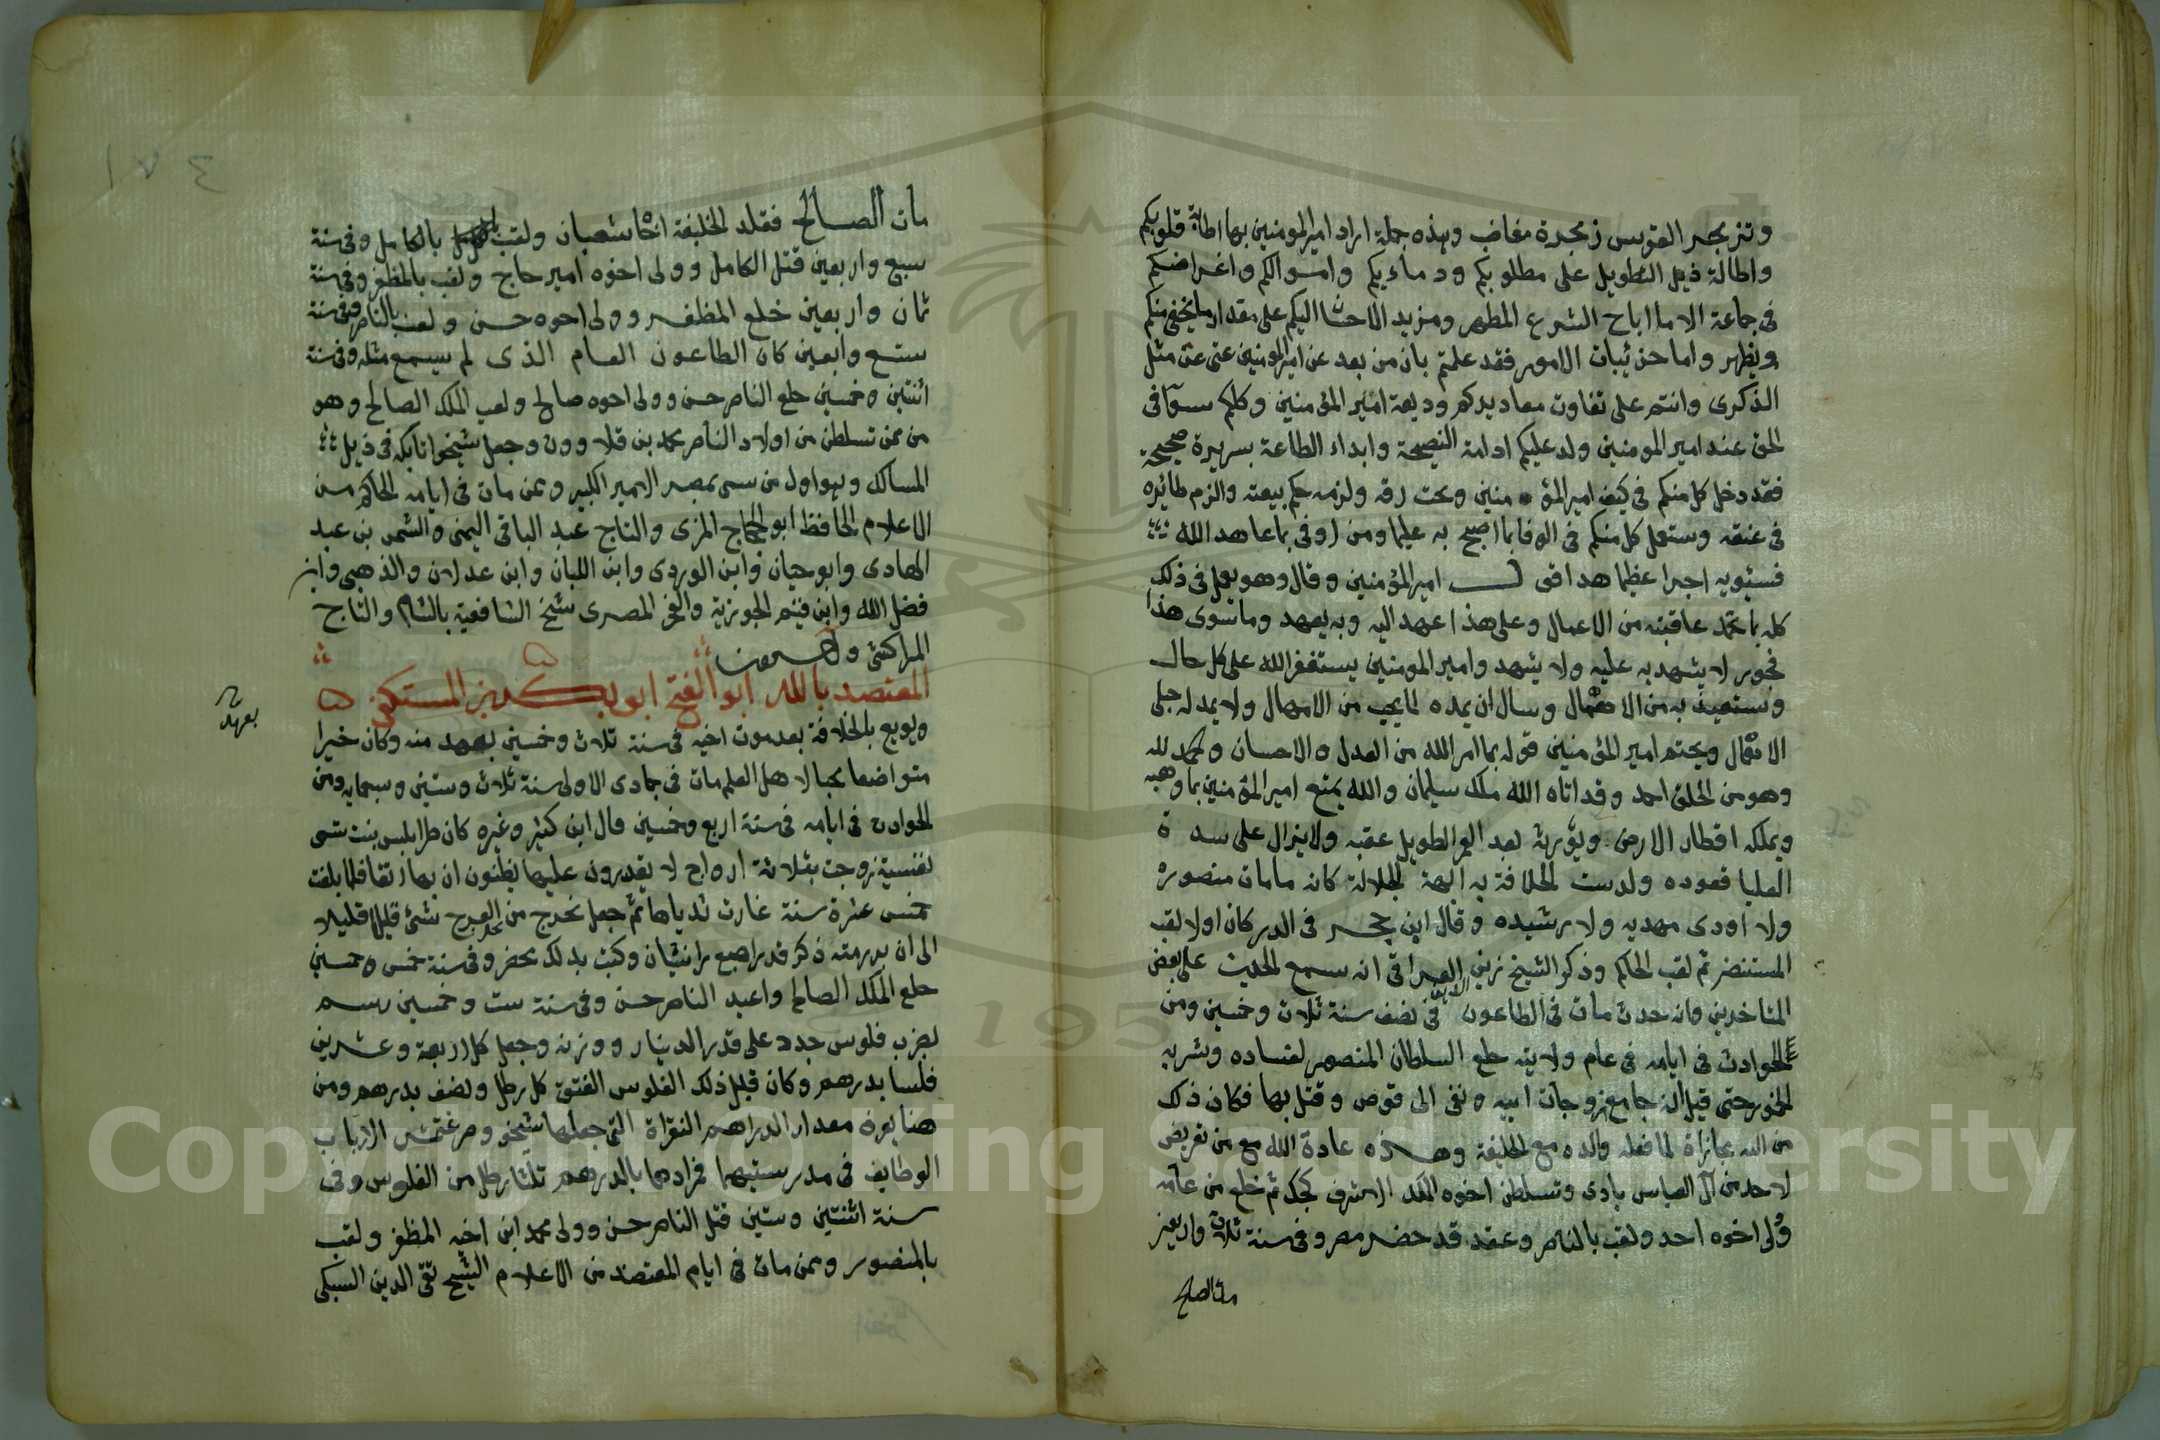 وتزمجر القوس زمجرة مغاضب وهذه جملة اراد امير المومنين بها اطابة قلوبكم
واطالة ذيل التطويل على مطلوبكم ودماءكم وامسوالكم واغراضكم
فى جماعة الا ما اباح الشرع المطهر ومزيد الاحسان اليكم على مقدار ما يخفى منكم
ويظهر واما جزئيات الامور فقد علمتم بان من بعد عن امير المومنين غنى عن مثل
الذكرى وانتم على تفاوت مقاديركم وديعة امير المؤمنين وكلكم سوآ فى
الحق عند امير المومنين وله عليكم ادامة النصيحة وابداء الطاعة بسريرة صحيحة
فقد دخل كل منكم فى كنف امير المؤمنين وتحت رقه ولزمه حكم بيعته والزم طائره
فى عنقه وستعلم كل منكم فى الوفا بما اصبح به عليما ومن اوفى بما عاهد الله
فسنؤتيه اجرا عظيما هذا قول امير المؤمنين وقال وهو يعمل فى ذلك
كله بما تحمد عاقبته من الاعمال وعلى هذا عهد اليه وبه يعهد وما سوى هذا
فجور لا يشهد به عليه ولا يشهد وامير المومنين يستغفر الله على كل حال
ونستعيذ به من الاهمال وسال ان يمده لما يحب من الامهال ولا يمد له حبل
الانهمال ويختم امير المؤمنين قوله بما امر الله من العدل والاحسان والحمد لله
وهو من الخلق احمد وقد اتاه الله ملك سليمان والله يمتع امير المؤمنين بما وهبه
ويملكه اقطار الارض ويؤرثه بعد العمر الطويل عقبه ولا يزال على سدة
العليا قعوده ولدست الخلافة به ابهة الجلالة كانه ما مات منصوره
ولا اودى مهديه ولا رشيده وقال ابن حجر فى الدرر كان اولا لقب
المستنصر ثم لقب الحاكم وذكر الشيخ زين العراقى انه سمع الحديث على بعض
المتاخرين وانه حدث مات فى الطاعون فى نصف سنة ثلاث وخمسين ومن
الحوادث فى ايامه فى عام ولايته خلع السلطان المنصور لفساده وشربه
الخمور حتى قيل انه جامع زوجات ابيه ونفى الى قوص وقتل بها فكان ذلك
من الله مجازاة لما فعله والده مع الخليفة وهذه عادة الله مع من تعرض
لاحد من آل العباس باذى وتسلطن اخوه الملك الاشرف كجك ثم خلع من عامه
وولى اخوه احمد ولقب بالناصر وعقد قد حضر مصر وفى سنة ثلاث واربعين
مات الصالح
١٧٤
مات الصالح فقلد الخليفة اخا شعبان ولقب بالكامل وفى سنة
سبع واربعين قتل الكامل وولى اخوه امير حاج ولقب بالمظفر وفى سنة
ثمان واربعين خلع المظفر وولى اخوه حسن ولقب بالناصر وفى سنة
ستع وابعين كان الطاعون العام الذى لم يسمع مثله وفى سنة
اثنتين وخمسين خلع الناصر حسن وولى اخوه صالح ولقب الملك الصالح وهو
من ممن تسلطن من اولاد الناصر محمد بن قلاوون وجعل شيخوا اتابكه فى ذيل
المسالك وهو اول من سمى بمصر الامير الكبير وممن مات فى ايامه الحاكم من
الاعلام الحافظ ابو الحجاج المزى والتاج عبد الباقى اليمنى والشمس بن عبد
الهادى وابو حيان وابن الوردى وابن اللبان وابن عدلان والذهبى وابن
فضل الله وابن قيم الجوزية والفخر المصرى شيخ الشافعية بالشام والتاج
المراكشى وآخرون
المعتضد بالله ابو الفتح ابو بكر بن المستكفى
وبويع بالخلافة بعد موت اخيه فى سنة ثلاث وخمسين بعهد منه وكان خيرا
بعهد
متواضعا محبا لاهل العلم مات فى جمادى الاولى سنة ثلاث وستين وسبمايه ومن
الحوادث فى ايامه فى سنة اربع وخمسين قال ابن كثير وغيره كان طرابلس بنت تسمى
نفيسة زوجت بثلاثة ازواج لا يقدرون عليها يظنون ان بها رتقا فلما بلغت
خمس عشرة سنة غارت ثدياها ثم جعل يخرج من الفرج شئ قليل قليلا
الى ان برز منه ذكر قدر اصبع وانثيان وكتب بذلك محضر وفى سنة خمس وخمسين
خلع الملك الصالح واعيد الناصر حسن وفى سنة ست وخمسين رسم
بضرب فلوس جدد على قدر الدينار ووزنه وجعل كل اربعة وعشرين
فلسا بدرهم وكان قبل ذلك الفلوس العتق كل رطل ونصف بدرهم ومن
هنا يعرف مقدار الدراهم النقراة التى جعلها شيخو وصرغتمش لارباب
الوظايف فى مدرستيهما فمرادهما بالدرهم ثلثا رطل من الفلوس وفى
سنة اثنتين وستين قتل الناصر حسن وولى محمد ابن اخيه المظفر ولقب
بالمنصور وممن مات فى ايام المعتضد من الاعلام الشيخ تقى الدين السبكى
Copyright © King Saud University
195